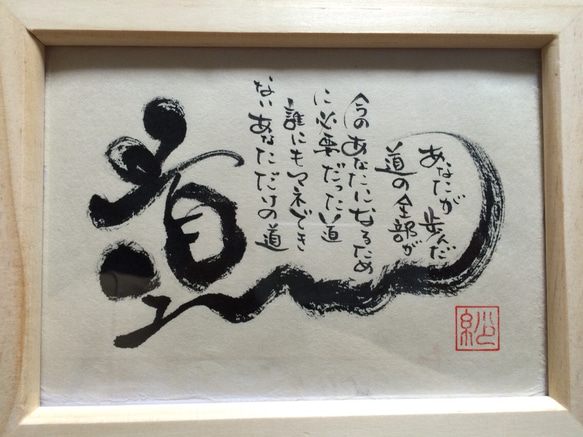 道
あなたが歩んだ
道の全部が
今のあなたになるため
に必要だった道
誰にもマネでき
ないあなただけの道